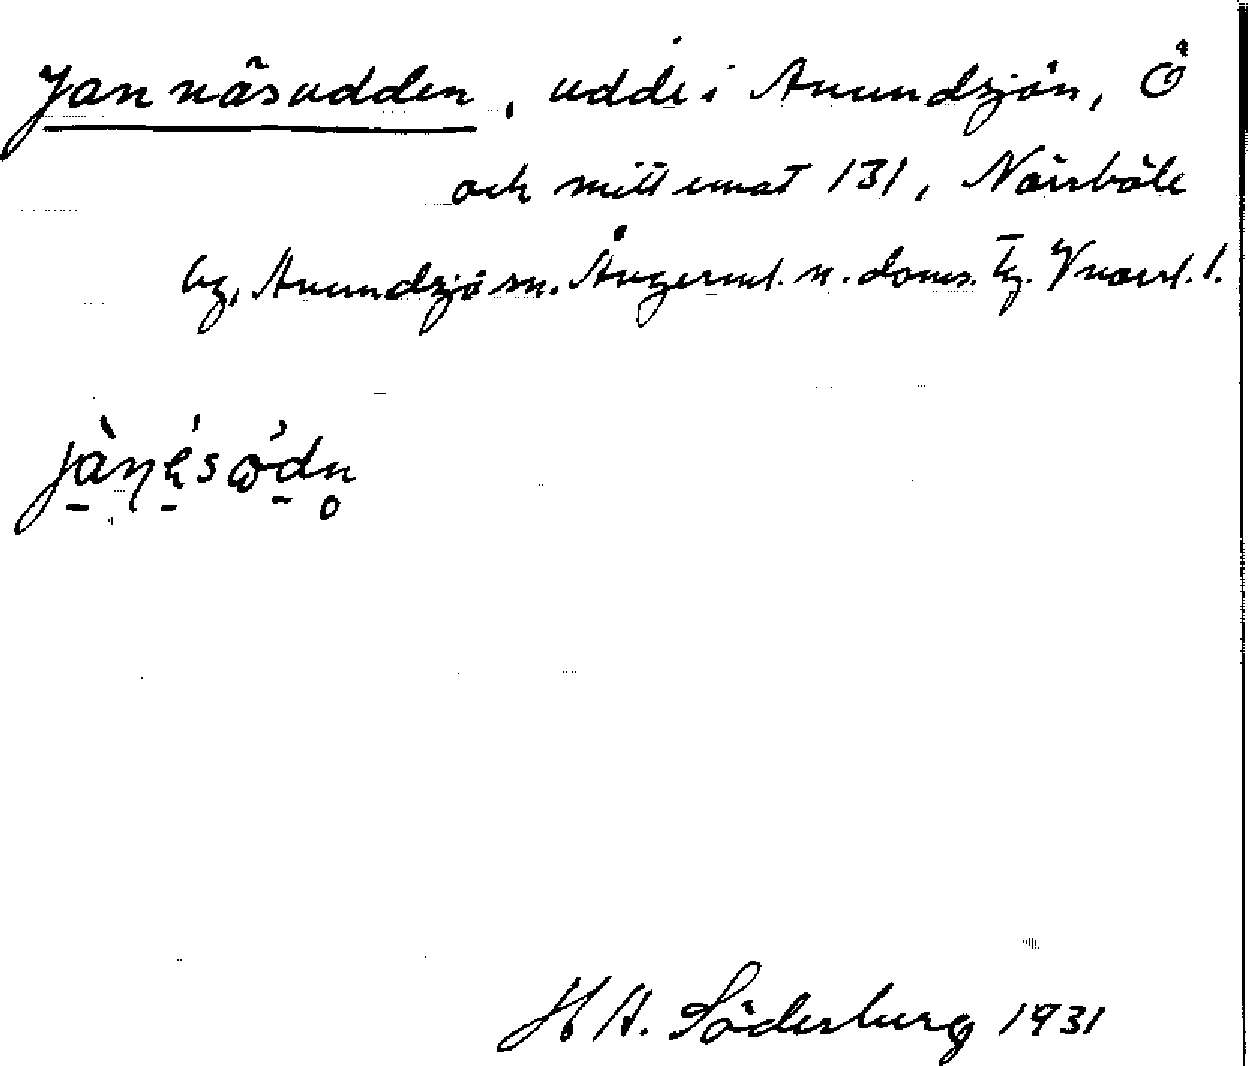 Jannäsudden, udde i Anundsjön, Ö
och mitt emot 131, Norrböle
by, Anundsjö sn. Ångerml. n. doms. tg. Vnorrl. l.
H A. Söderberg 1931